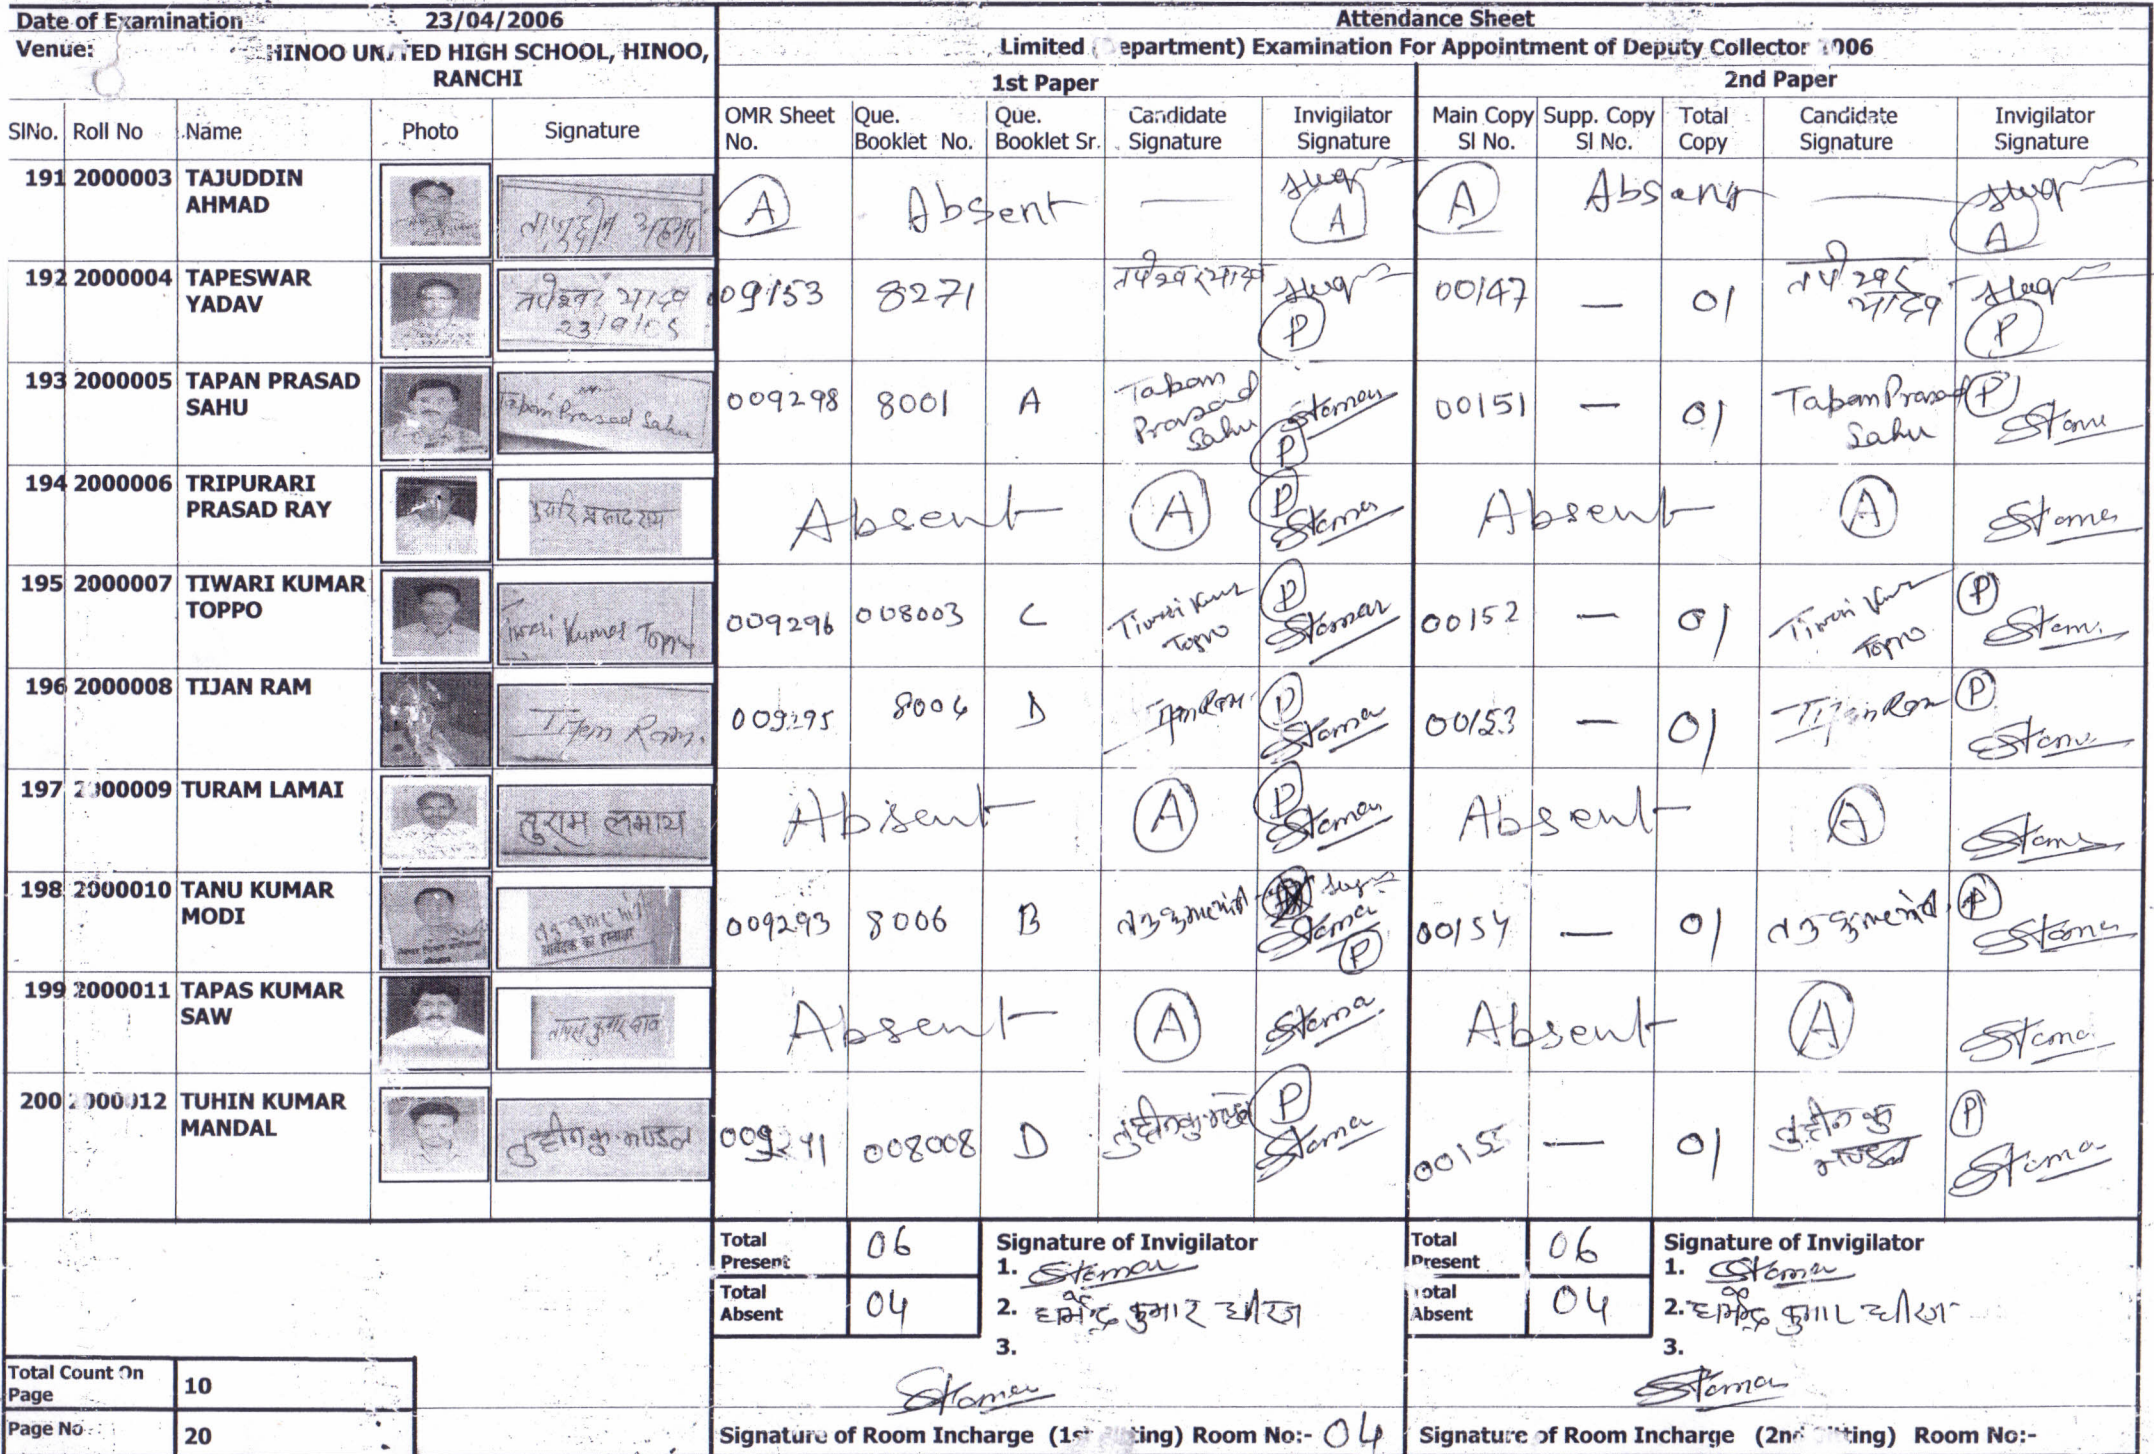 Date of Examination 23/04/2006 Attendance Sheet
Venue: HINOO UNITED HIGH SCHOOL, HINOO, RANCHI
Limited (Department) Examination For Appointment of Deputy Collector 2006
1st Paper 2nd Paper
SlNo. Roll No Name Photo Signature OMR Sheet No. Que. Booklet No. Que. Booklet Sr. Candidate Signature Invigilator Signature Main Copy Sl No. Supp. Copy Sl No. Total Copy Candidate Signature Invigilator Signature
191 2000003 TAJUDDIN AHMAD ताजुद्दीन अहमद A Absent — A A Absent — A
192 2000004 TAPESWAR YADAV तपेश्वर यादव 009153 8271 तपेश्वर यादव P 00147 — 01 तपेश्वर यादव P
193 2000005 TAPAN PRASAD SAHU Tapan Prasad Sahu 009298 8001 A Tapan Prasad Sahu P 00151 — 01 Tapan Prasad Sahu P
194 2000006 TRIPURARI PRASAD RAY Absent A P Absent A
195 2000007 TIWARI KUMAR TOPPO Tiwari Kumar Toppo 009296 008003 C Tiwari Kumar Toppo P 00152 — 01 Tiwari Kumar Toppo P
196 2000008 TIJAN RAM Tijan Ram. 009295 8004 D Tijan Ram. P 00153 — 01 Tijan Ram P
197 2000009 TURAM LAMAI तुराम लमाय Absent A P Absent A
198 2000010 TANU KUMAR MODI तनु कुमार मोदी 009293 8006 B तनु कुमार मोदी P 00154 — 01 तनु कुमार मोदी P
199 2000011 TAPAS KUMAR SAW तापस कुमार साव Absent A Absent A
200 2000012 TUHIN KUMAR MANDAL तुहीन कु. मण्डल 009291 008008 D तुहीन कु. मण्डल P 00155 — 01 तुहीन कु मण्डल P
Total Present 06 Signature of Invigilator Total Present 06 Signature of Invigilator
1. 1.
Total Absent 04 2. धर्मेन्द्र कुमार धीरज Total Absent 04 2. धर्मेन्द्र कुमार धीरज
3. 3.
Total Count On Page 10
Page No 20 Signature of Room Incharge (1st Sitting) Room No:- 04 Signature of Room Incharge (2nd Sitting) Room No:-